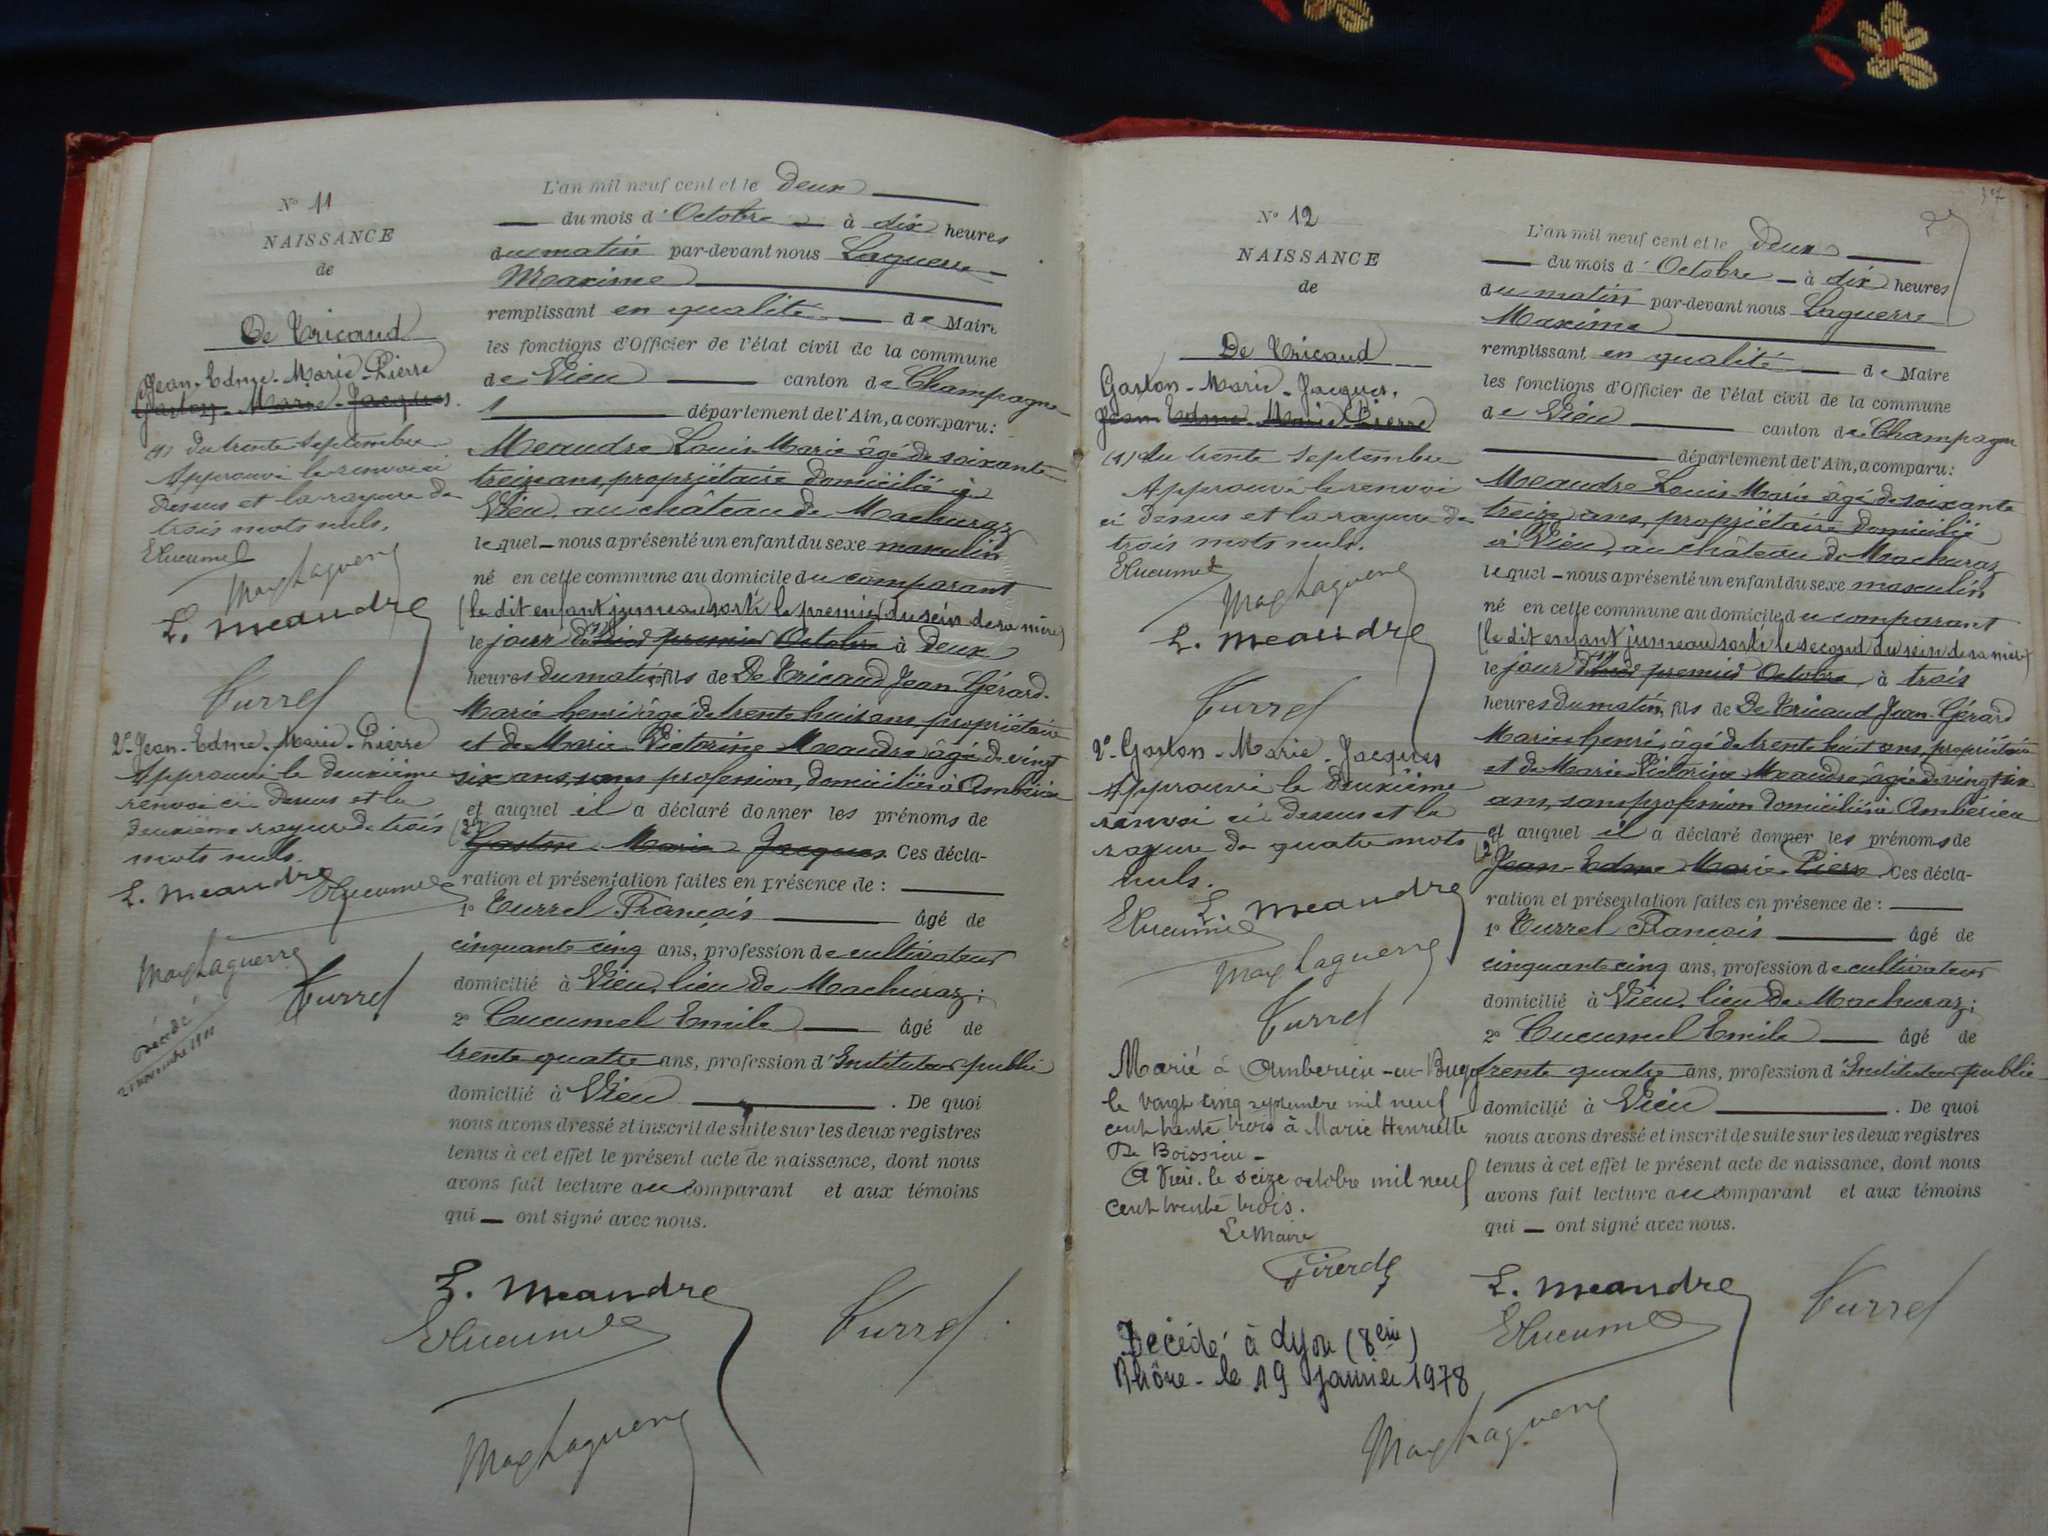 N° 11
NAISSANCE
de
De Tricaud
Jean-Edme-Marie-Pierre
Gaston-Marie-Jacques.
(1) du trente septembre
Approuvé le renvoi ci
dessus et la rayure de
trois mots nuls.
ECucumel
Max Laguerre
L. Meaudre
Turrel
2°-Jean-Edme-Marie-Pierre
Approuvé le deuxième
renvoi ci dessus et la
deuxième rayure de trois
mots nuls.
L. Meaudre ECucumel
Max Laguerre Turrel
Décédé
L'an mil neuf cent et le deux
du mois d'Octobre à dix heures
du matin par-devant nous Laguerre
Maxime
remplissant en qualité de Maire
les fonctions d'Officier de l'état civil de la commune
de Vieu canton de Champagne
département de l'Ain, a comparu:
Meaudre Louis Marie âgé de soixante
treize ans, propriétaire domicilié à
Vieu, au château de Machuraz
lequel nous a présenté un enfant du sexe masculin
né en cette commune au domicile du comparant
(le dit enfant jumeau sorti le premier du sein de sa mère)
le jour d'hier premier Octobre à deux
heures du matin, fils de De Tricaud Jean-Gérard-
Marie henri âgé de trente huit ans, propriétaire
et de Marie Victorine Meaudre âgée de vingt
six ans, sans profession, domiciliés à Ambérieu
et auquel il a déclaré donner les prénoms de
(2) Gaston-Marie-Jacques. Ces décla-
ration et présentation faites en présence de :
1° Turrel François âgé de
cinquante cinq ans, profession de cultivateur
domicilié à Vieu, lieu de Machuraz;
2° Cucumel Emile âgé de
trente quatre ans, profession d'Instituteur public
domicilié à Vieu . De quoi
nous avons dressé et inscrit de suite sur les deux registres
tenus à cet effet le présent acte de naissance, dont nous
avons fait lecture au comparant et aux témoins
qui ont signé avec nous.
L. Meaudre
ECucumel Turrel
Max Laguerre
N° 12
NAISSANCE
de
De Tricaud
Gaston-Marie-Jacques.
Jean-Edme-Marie-Pierre
(1) du trente septembre
Approuvé le renvoi
ci dessus et la rayure de
trois mots nuls.
ECucumel
Max Laguerre
L. Meaudre
Turrel
2°-Gaston-Marie-Jacques
Approuvé le deuxième
renvoi ci dessus et la
rayure de quatre mots
nuls.
L. Meaudre
ECucumel
Max Laguerre
Turrel
Marié à Ambérieu-en-Bugey
le vingt cinq septembre mil neuf
cent trente trois à Marie Henriette
De Boissieu -
A Vieu, le seize octobre mil neuf
cent trente trois.
Le Maire
Décédé à Lyon (8ème)
Rhône - le 19 janvier 1978
37
L'an mil neuf cent et le deux
du mois d'Octobre à dix heures
du matin par-devant nous Laguerre
Maxime
remplissant en qualité de Maire
les fonctions d'Officier de l'état civil de la commune
de Vieu canton de Champagne
département de l'Ain, a comparu:
Meaudre Louis Marie âgé de soixante
treize ans, propriétaire domicilié
à Vieu, au château de Machuraz
lequel nous a présenté un enfant du sexe masculin
né en cette commune au domicile du comparant
(le dit enfant jumeau sorti le second du sein de sa mère)
le jour d'hier premier Octobre à trois
heures du matin, fils de De Tricaud Jean-Gérard
Marie henri, âgé de trente huit ans, propriétaire
et de Marie Victorine Meaudre âgée de vingt six
ans, sans profession domiciliés à Ambérieu
et auquel il a déclaré donner les prénoms de
(2) Jean-Edme-Marie-Pierre Ces décla-
ration et présentation faites en présence de :
1° Turrel François âgé de
cinquante cinq ans, profession de cultivateur
domicilié à Vieu, lieu de Machuraz;
2° Cucumel Emile âgé de
trente quatre ans, profession d'Instituteur public
domicilié à Vieu . De quoi
nous avons dressé et inscrit de suite sur les deux registres
tenus à cet effet le présent acte de naissance, dont nous
avons fait lecture au comparant et aux témoins
qui ont signé avec nous.
L. Meaudre
ECucumel Turrel
Max Laguerre